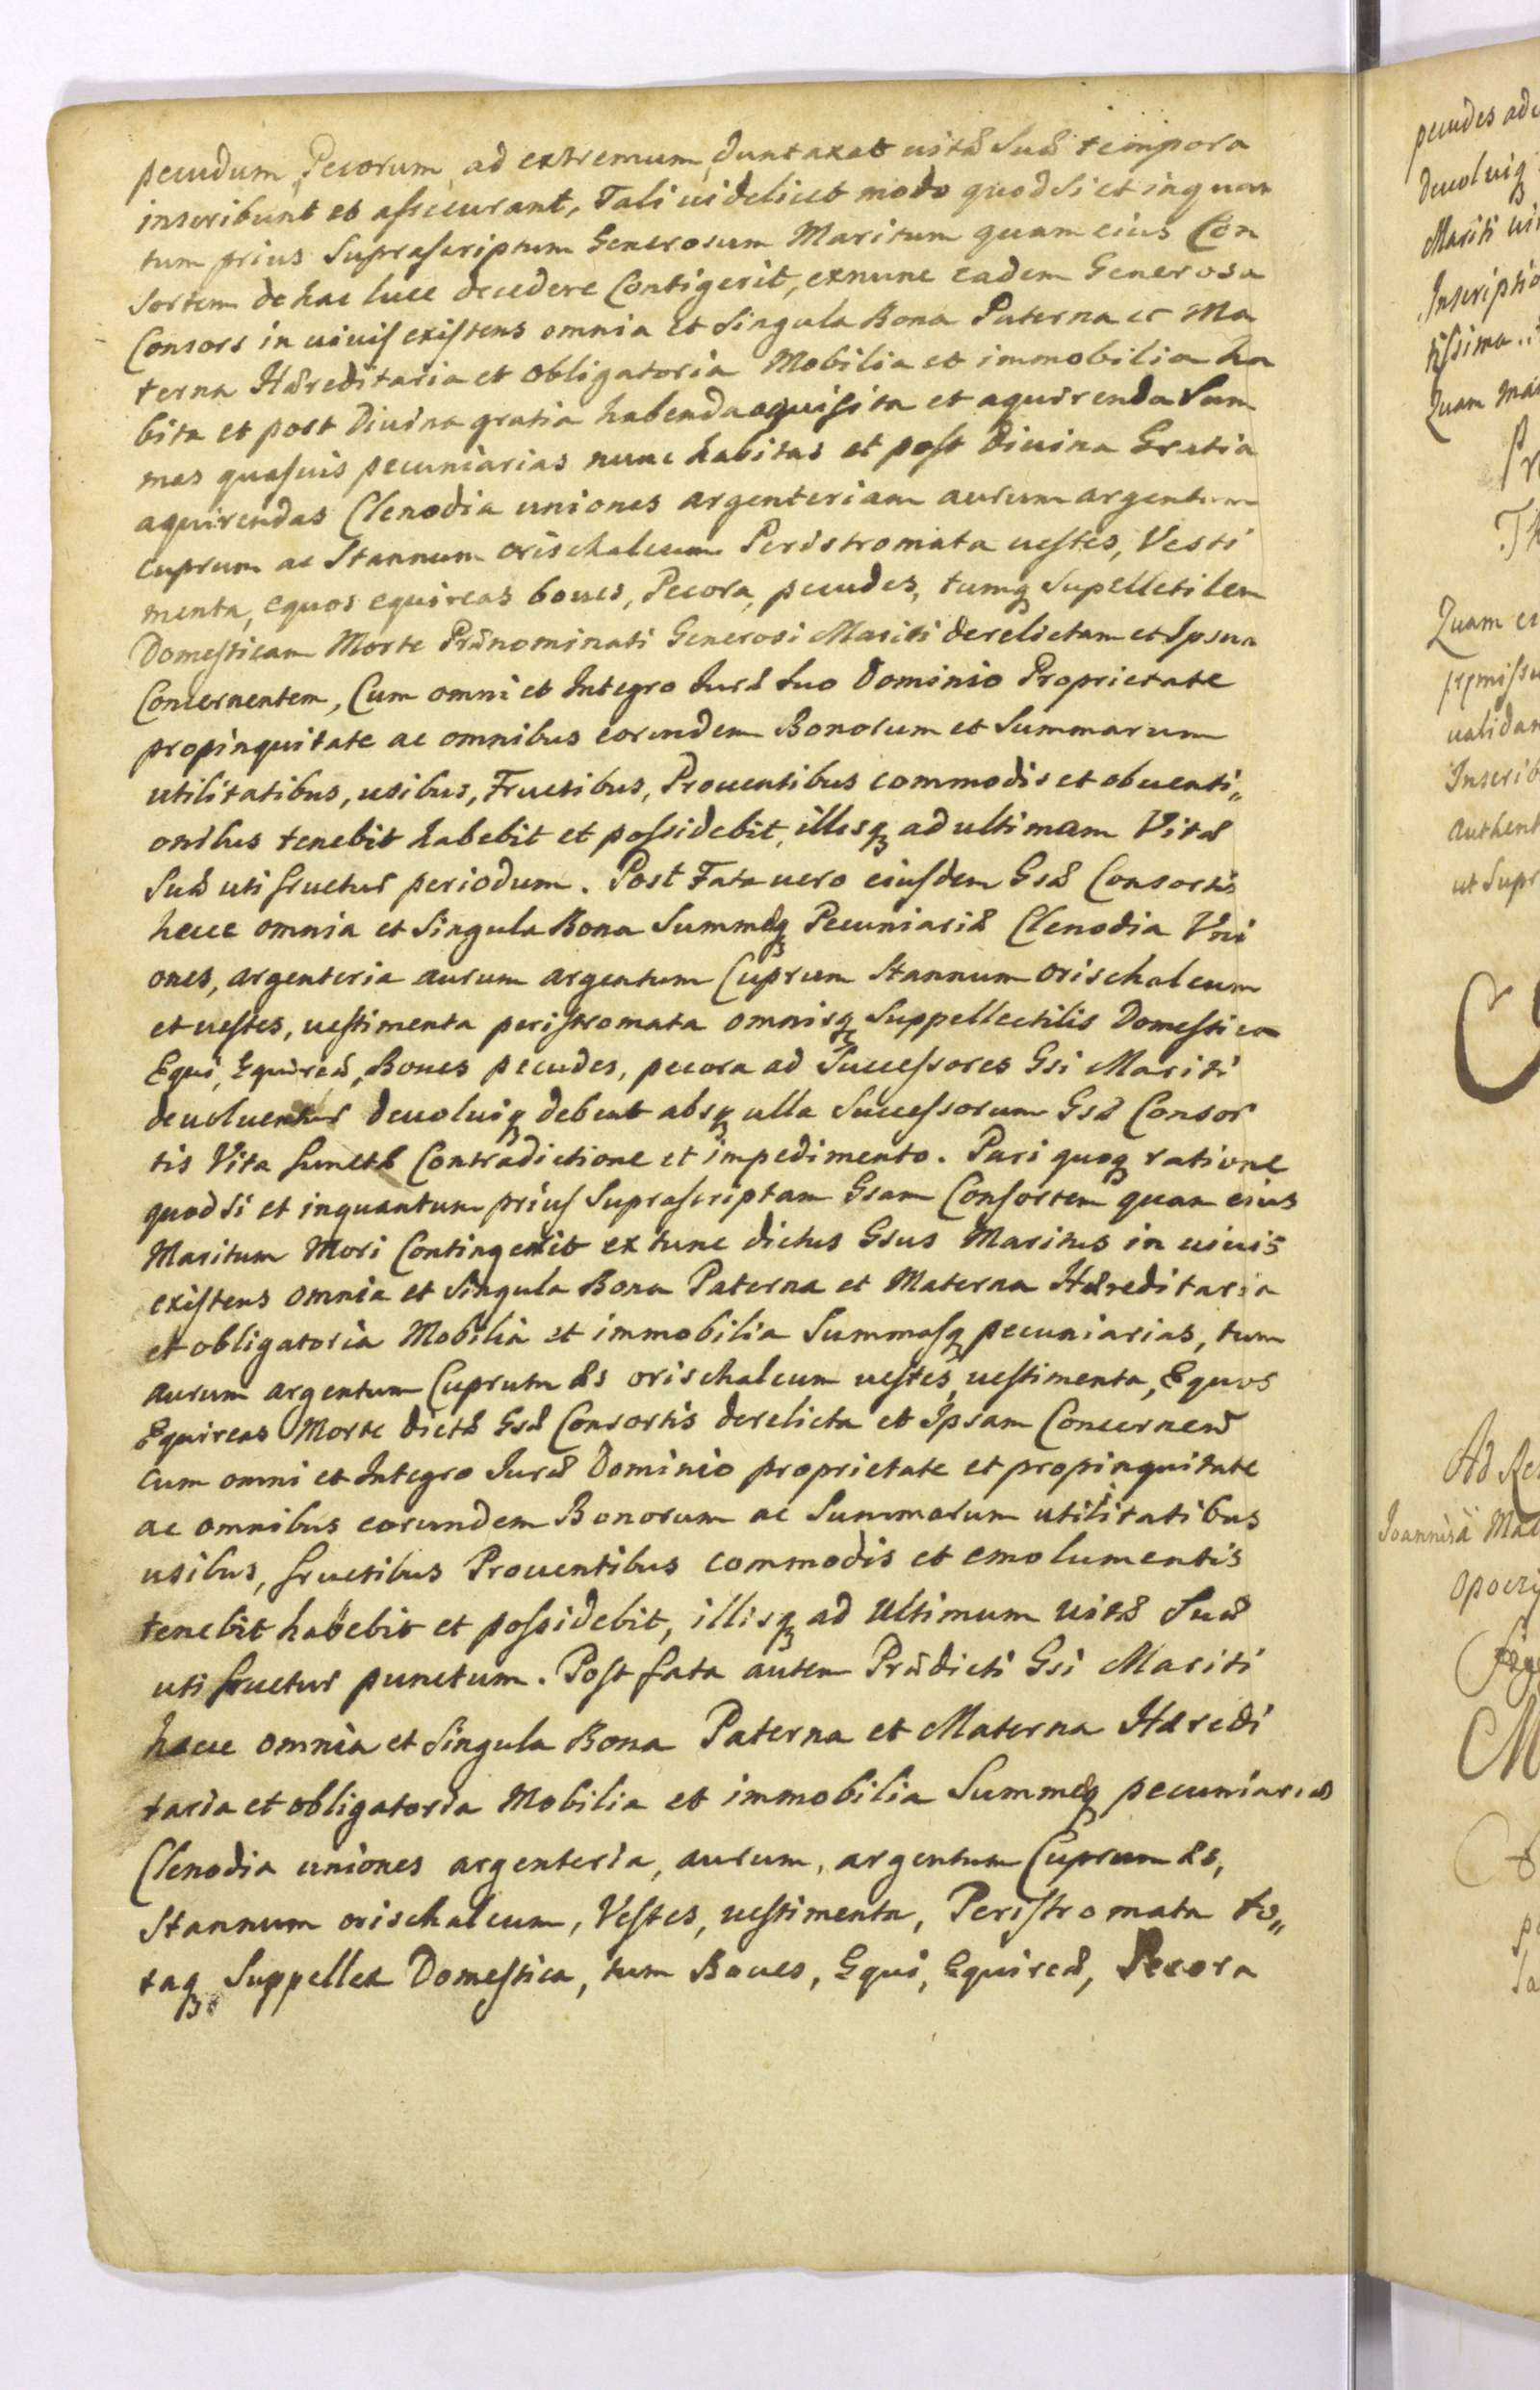 pecudum, Pecorum, ad extremum duntaxat uitæ Suæ tempora
inscribunt et assecurant, Tali uidelicet modo quod Si et inquan
tum prius Suprascriptum Generosum Maritum quam eius Con
sortem de hac luce decedere Contigerit, exnunc eadem Generosa
Consors in uiuis existens omnia et Singula Bona Paterna et Ma
terna Hæreditaria et obligatoria Mobilia et immobilia ha
bita et post Diuina gratia habenda aquisita et aquirenda Sum
mas quasuis pecuniarias nunc habitas et post diuina Gratia
aquirendas Clenodia uniones argenteriam aurum argentum
cuprum ac Stannum orischalcum Peristromata uestes, Vesti
menta, equos equireas boues, Pecora, pecudes, tumq Supelletilem
Domesticam Morte Prænominati Generosi Mariti derelictam et Ipsum
Concernentem, Cum omni et Integro Iure suo Dominio Proprietate
propinquitate ac omnibus eorundem Bonorum et Summarum
utilitatibus, usibus, Fructibus, Prouentibus commodis et obuenti„
onibus tenebit habebit et possidebit, illisq ad ultimam Vitæ
Suæ uti fructur periodum. Post Fata uero eiusdem Gsæ Consortis
hecce omnia et Singula Bona Summæq Pecuniariæ Clenodia Vni
ones, argenteria aurum argentum Cuprum Stannum orischalcum
et uestes, uestimenta peristromata omnisq Suppellectilis Domestica
Equi, Equireæ, Boues pecudes, pecora ad Successores Gsi Mariti
deuoluentur deuoluiq debent absq ulla Successorum Gsæ Consor
tis Vita functæ Contradictione et impedimento. Pari quoq ratione
quod Si et inquantum prius Suprascriptam Gsam Consortem quam eius
Maritum Mori Contingerit ex tunc dictus Gsus Maritus in uiuis
existens omnia et Singula Bona Paterna et Materna Hæreditaria
et obligatoria Mobilia et immobilia Summasq pecuniarias, tum
aurum argentum Cuprum æs orischalcum uestes, uestimenta, Equos
Equireas Morte dictæ Gsæ Consortis derelicta et Ipsam Concernen
cum omni et Integro Iure Dominio proprietate et propinquitate
ac omnibus eorundem Bonorum ac Summarum utilitatibus
usibus, fructibus Prouentibus commodis et emolumentis
tenebit habebit et possidebit, illisq ad Ultimum uitæ Suæ
uti fructur punctum. Post fata autem Prædicti Gsi Mariti
hecce omnia et Singula Bona Paterna et Materna Hæredi
taria et obligatoria Mobilia et immobilia Summæq pecuniariæ
Clenodia uniones argenteria, aurum, argentum Cuprum æs,
Stannum orischalcum, Vestes, uestimenta, Peristromata to„
taq Suppellex Domestica, tum Boues, Equi, Equireæ, Pecora
pecudes
deuoluiq
Mariti
Quam
Quam
Ad